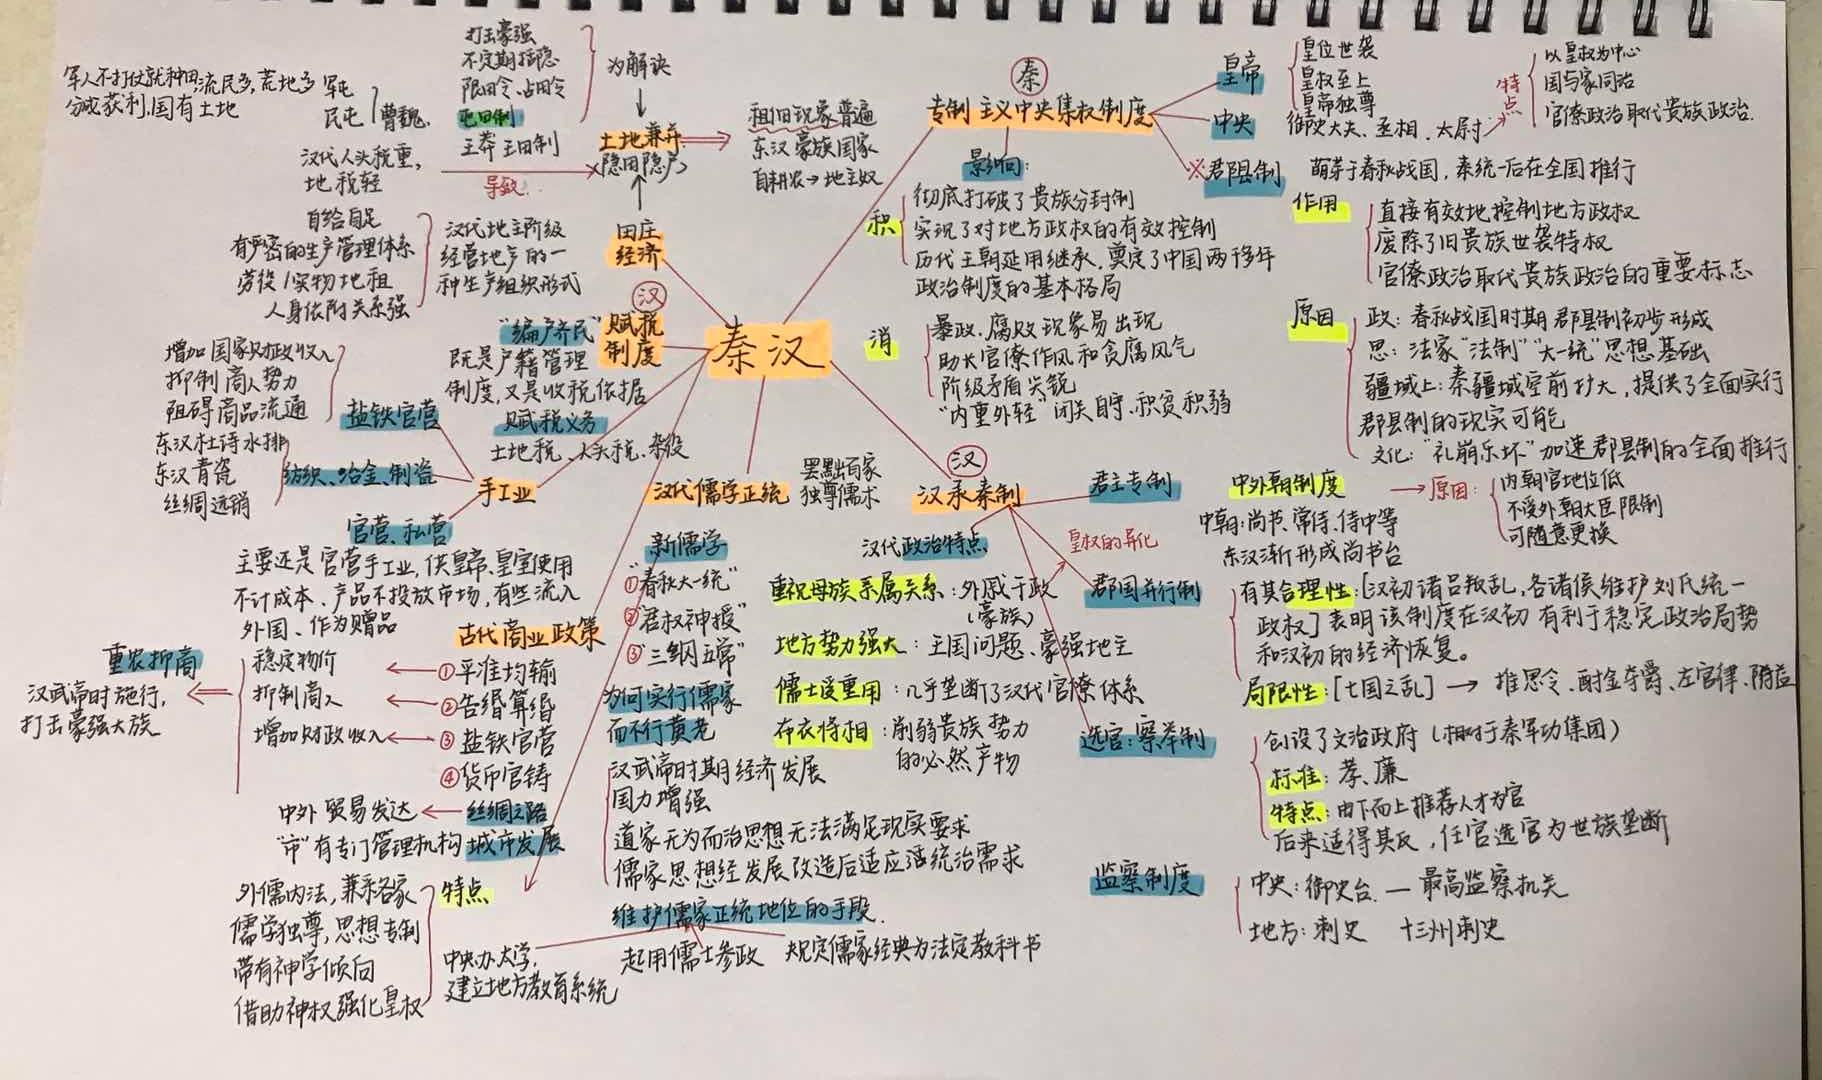 秦汉
秦
专制主义中央集权制度
皇帝
皇位世袭
皇权至上
皇帝独尊
中央
御史大夫、丞相、太尉
特点
以皇权为中心
国与家同治
官僚政治取代贵族政治.
※郡县制
萌芽于春秋战国,秦统一后在全国推行
作用
直接有效地控制地方政权
废除了旧贵族世袭特权
官僚政治取代贵族政治的重要标志
原因
政:春秋战国时期郡县制初步形成
思:法家“法制”“大一统”思想基础
疆域上:秦疆域空前扩大,提供了全面实行
郡县制的现实可能
文化:“礼崩乐坏”加速郡县制的全面推行
影响:
积
彻底打破了贵族分封制
实现了对地方政权的有效控制
历代王朝延用继承,奠定了中国两千多年
政治制度的基本格局
消
暴政、腐败现象易出现
助长官僚作风和贪腐风气
阶级矛盾尖锐
“内重外轻”闭关自守、积贫积弱
汉
汉承秦制
君主专制
中外朝制度
原因:
内朝官地位低
不受外朝大臣限制
可随意更换
中朝:尚书、常侍、侍中等
东汉渐形成尚书台
皇权的异化
汉代政治特点
重视母族亲属关系:外戚干政
(豪族)
地方势力强大:王国问题、豪强地主
儒士受重用:几乎垄断了汉代官僚体系
布衣将相:削弱贵族势力
的必然产物
郡国并行制
有其合理性:[汉初诸吕叛乱,各诸侯维护刘氏统一
政权]表明该制度在汉初有利于稳定政治局势
和汉初的经济恢复。
局限性:[七国之乱]→推恩令、酎金夺爵、左官律、附益
选官:察举制
创设了文治政府(相对于秦军功集团)
标准:孝、廉
特点:由下而上推荐人才为官
后来适得其反,任官选官为世族垄断
监察制度
中央:御史台—最高监察机关
地方:刺史 十三州刺史
汉代儒学正统
罢黜百家
独尊儒术
新儒学
①“春秋大一统”
②“君权神授”
③“三纲五常”
为何实行儒家
而不行黄老
汉武帝时期经济发展
国力增强
道家无为而治思想无法满足现实要求
儒家思想经发展改造后适应适统治需求
维护儒家正统地位的手段.
中央办太学,
建立地方教育系统
起用儒士参政
规定儒家经典为法定教科书
特点
外儒内法,兼采各家
儒学独尊,思想专制
带有神学倾向
借助神权强化皇权
田庄
经济
汉代地主阶级
经营地产的一
种生产组织形式
自给自足
有严密的生产管理体系
劳役/实物地租
人身依附关系强
土地兼并
(隐田隐户)
为解决
打击豪强
不定期括隐
限田令、占田令
屯田制
王莽王田制
军屯
民屯
曹魏.
军人不打仗就种田,流民多,荒地多
分成获利,国有土地
汉代人头税重,
地税轻
导致
租佃现象普遍
东汉豪族国家
自耕农→地主奴
汉
赋税
制度
“编户齐民”
既是户籍管理
制度,又是收税依据
赋税义务
土地税、人头税、杂役
手工业
盐铁官营
增加国家财政收入
抑制商人势力
阻碍商品流通
纺织、冶金、制瓷
东汉杜诗水排
东汉青瓷
丝绸远销
官营、私营
主要还是官营手工业,供皇帝、皇室使用
不计成本、产品不投放市场,有些流入
外国、作为赠品
古代商业政策
①平准均输
②告缗算缗
③盐铁官营
④货币官铸
稳定物价
抑制商人
增加财政收入
重农抑商
汉武帝时施行,
打击豪强大族
丝绸之路
中外贸易发达
城市发展
“市”有专门管理机构